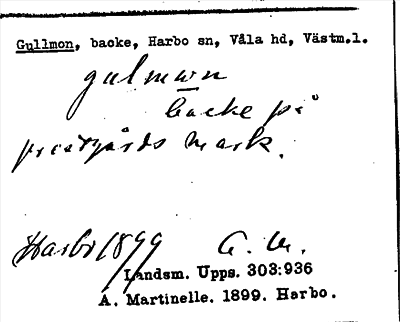 Gullmon, backe, Harbo sn, Våla hd, Västm.l.
gulmωn
backe på
prästgårds mark.
Harbo 1899 A. M.
Landsm. Upps. 303:936
A. Martinelle. 1899. Harbo.